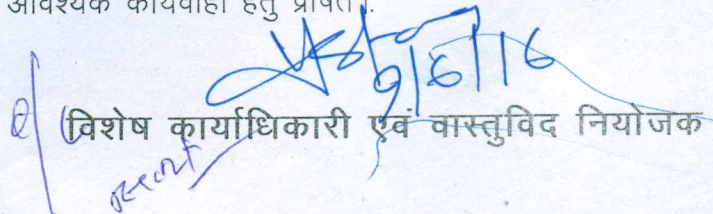 आवश्यक कार्यवाही हेतु प्रेषित।
9/6/16
(विशेष कार्याधिकारी एवं वास्तुविद नियोजक